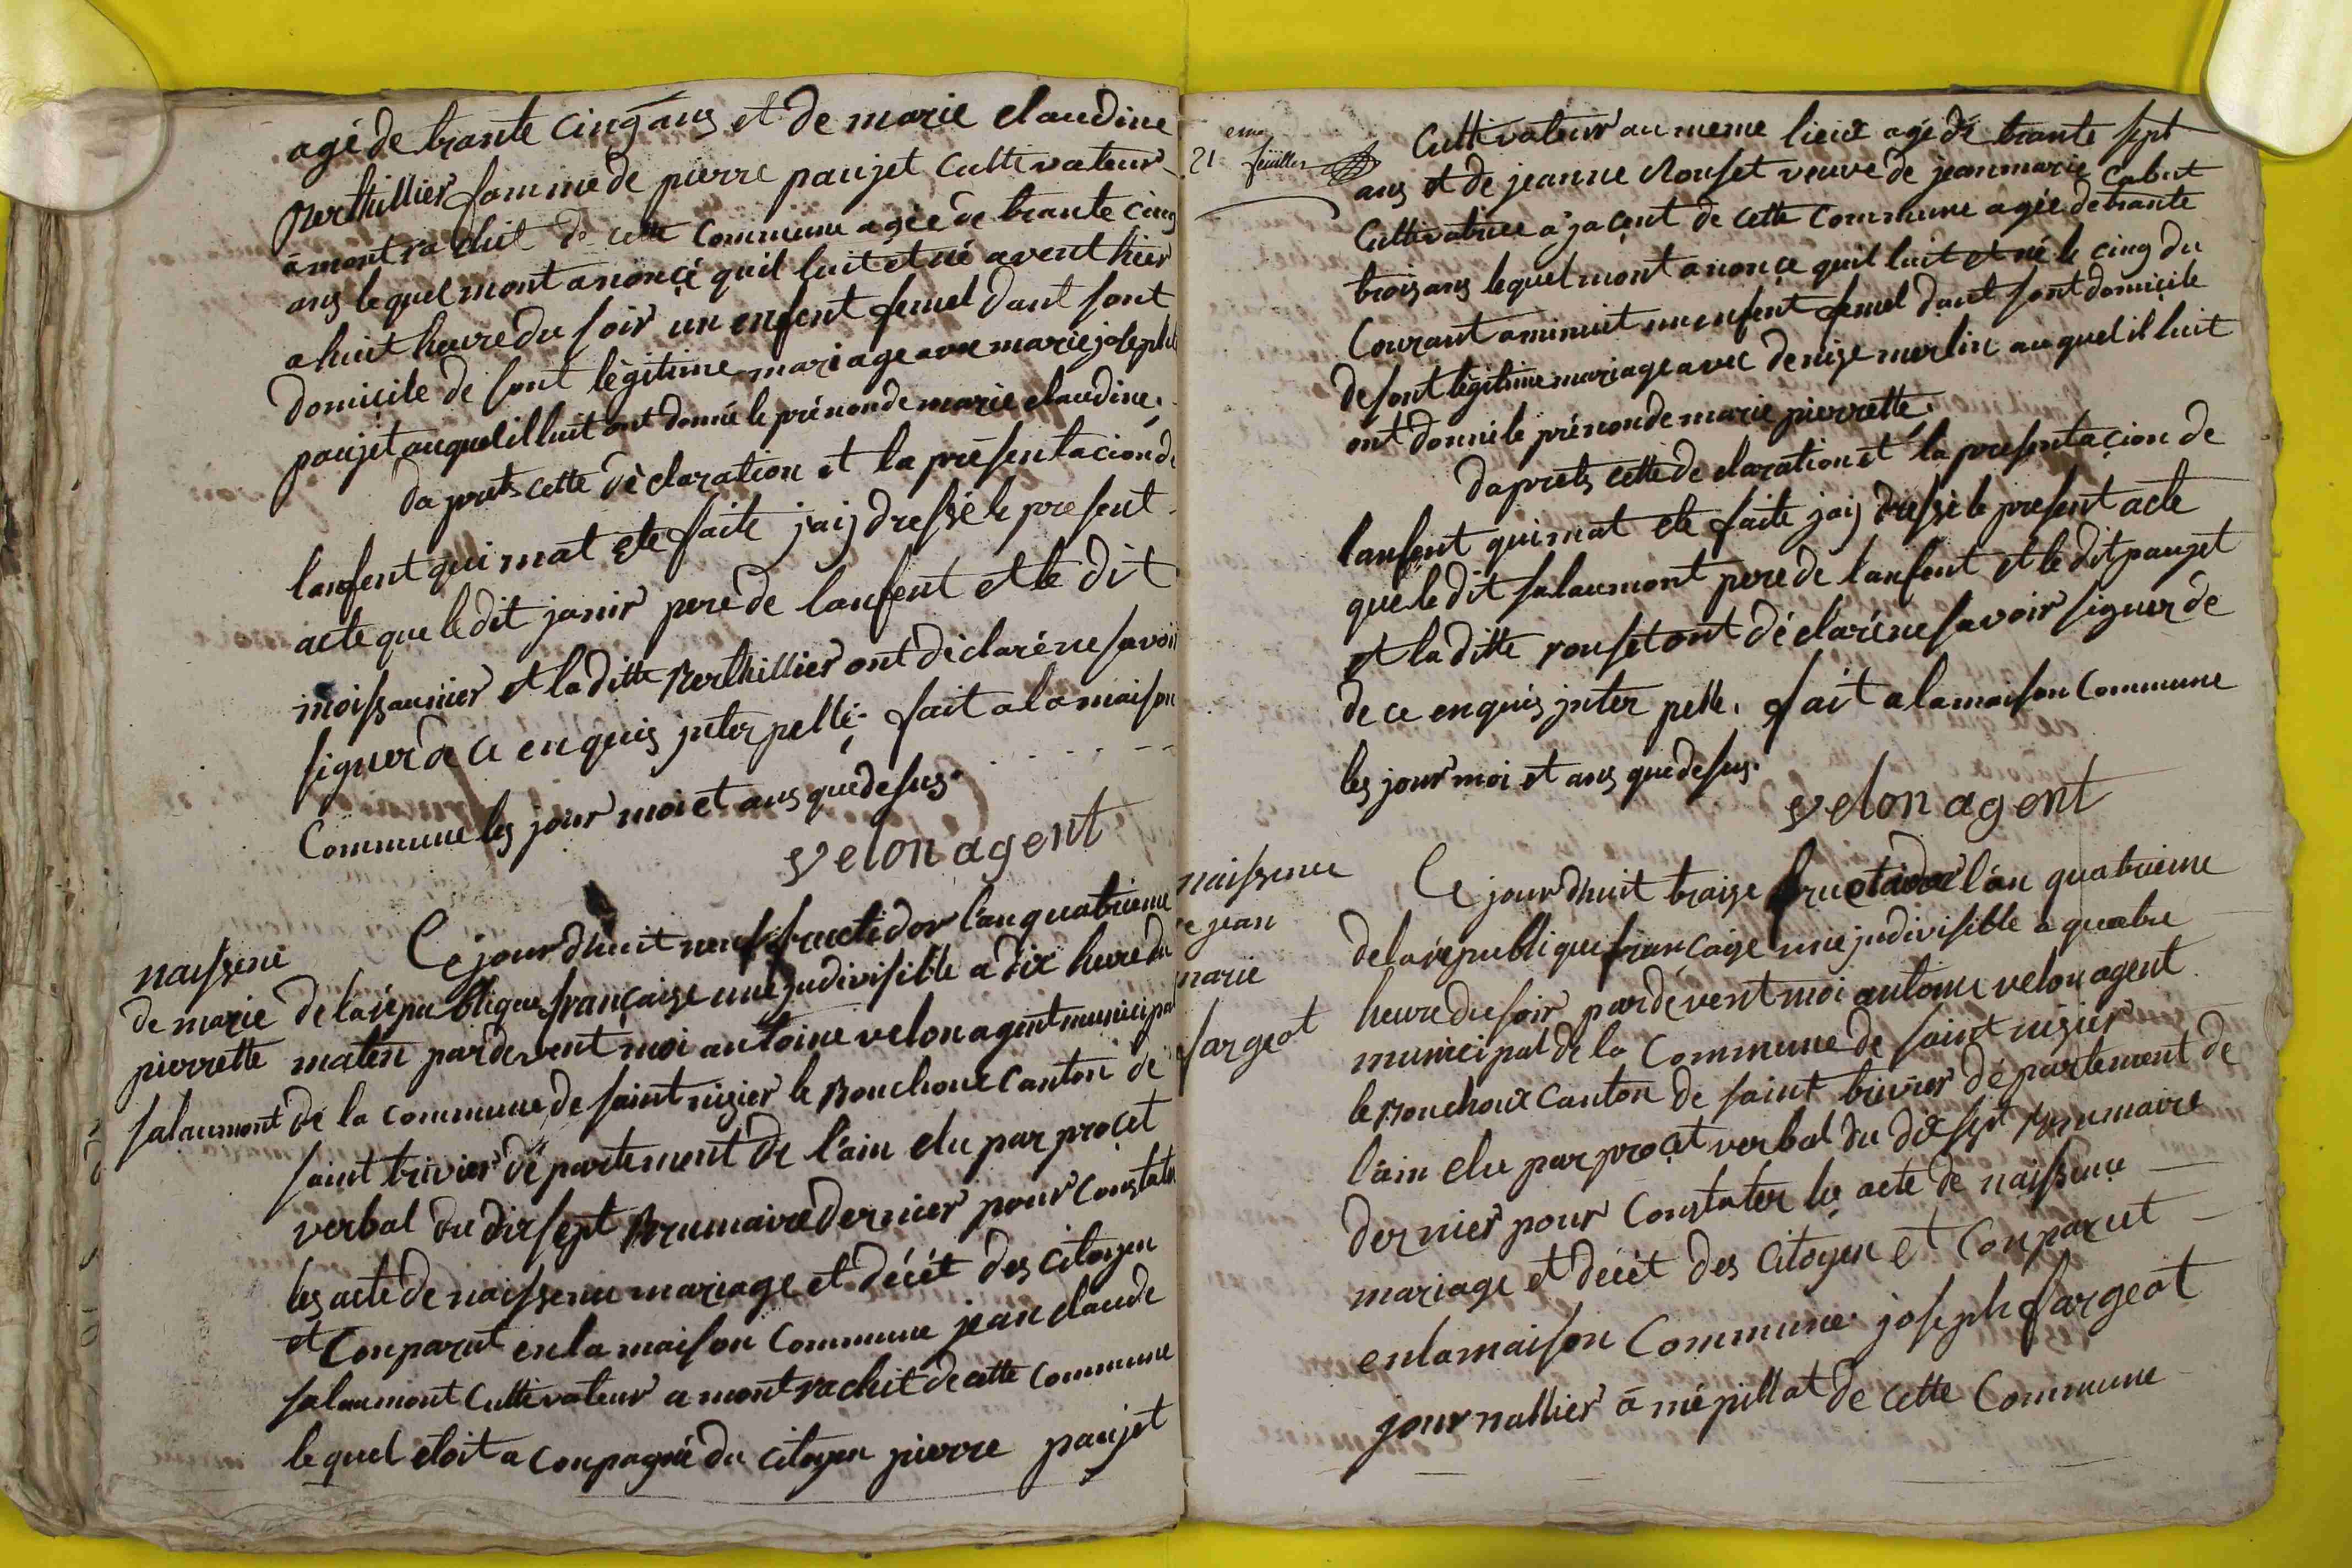 agé de trante cinq ans et de marie claudine
Berthillier famme de pierre paujet cultivateur
a montrachut de cette commune agée de trante cinq
ans lequel mont anoncé quil luit et né avent hier
a huit heure du soir un enfent femel dant sont
domicile de sont légitime mariage avec marie josephe
paujet auquel il luit ont donné le prénon de marie claudine,
daprets cette déclaration et la présentacion de
lanfent qui mat ete faite jaij dressé le present
acte que ledit janir pere de lanfent et le dit
moissannier et la ditte Berthillier ont déclaré ne savoir
signer de ce enquis jnterpellé. fait a la maison
Commune les jour moi et ans que desus.
velon agent
naissene
de marie
pierrette
salaumont
Ce jourdhuit neuf fructidor lan quatrieme
de la république française une judivisible a dix heure du
maten pardevent moi antoine velon agent municipal
de la commune de saint nizier le Bouchoux canton de
saint trivier département de l'ain elu par procet
verbal du dixsept Brumaire dernier pour constater
les acte de naissence mariage et décét des citoyen
et Conparut en la maison commune jean claude
salaumont cultivateur a montrachut de cette commune
lequel etoit a conpagné du citoyen pierre paujet
eme
21 feuillet
Cultivateur au meme lieux agé de trante sept
ans et de jeanne Rouset veuve de jeanmarie Cabut
Cultivatrice a jacent de cette commune agée de trante
trois ans lequel mont anoncé quil luit et né le cinq du
Courant a minuit un enfent femel dant sont domicile
de sont légitime mariage avec denize merlin auquel il luit
ont donné le prénon de marie pierrette,
daprets cette declaration et la presentacion de
lanfent qui mat ete faite jaij dressé le present acte
que le dit salaumont pere de lanfent et le dit paujet
et la ditte rouset ont déclaré ne savoir signer de
de ce enquis jnterpellé. fait a la maison Commune
les jour moi et ans que desus.
velon agent
naissence
e jean
marie
fargeot
Ce jourdhuit traize fructidor lan quatrieme
de la république française une judivisible a quatre
heure du soir pardevent moi antoine velon agent
municipal de la Commune de saint nizier
le Bouchoux canton de saint trivier département de
l'ain elu par procet verbal du dixsept Brumaire
dernier pour Constater les acte de naissence
mariage et décét des Citoyen et Conparut
en la maison Commune joseph fargeot
journallier a mépillat de cette Commune